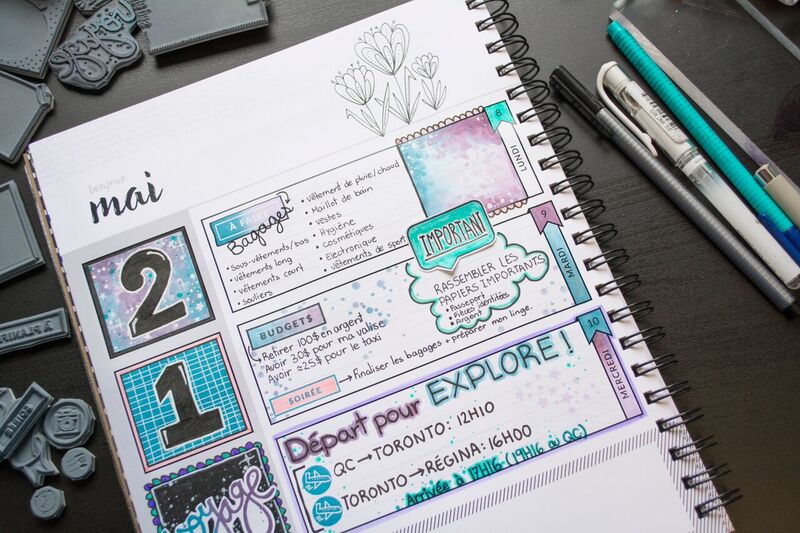 bonjour
mai
8
LUNDI
À FAIRE
Bagages
• Sous-vêtements/bas
• vêtements long
• vêtements court
• Souliers
• vêtement de pluie/chaud
• Maillot de bain
• vestes
• Hygiène
• cosmétiques
• Electronique
• vêtements de sport
2
9
MARDI
IMPORTANT
RASSEMBLER LES
PAPIERS IMPORTANTS
• Passeport
• Pièces identitées
• Argent
BUDGETS
→ Retirer 100$ en argent
Avoir 30$ pour ma valise
Avoir ≈25$ pour le taxi
SOIRÉE
→ Finaliser les bagages + préparer mon linge.
1
10
MERCREDI
Départ pour EXPLORE!
QC → TORONTO: 12H10
TORONTO → RÉGINA: 16H00
Arrivée à 17H16 (19H16 au QC)
voyage
À PLANIFIER
SOIRÉE